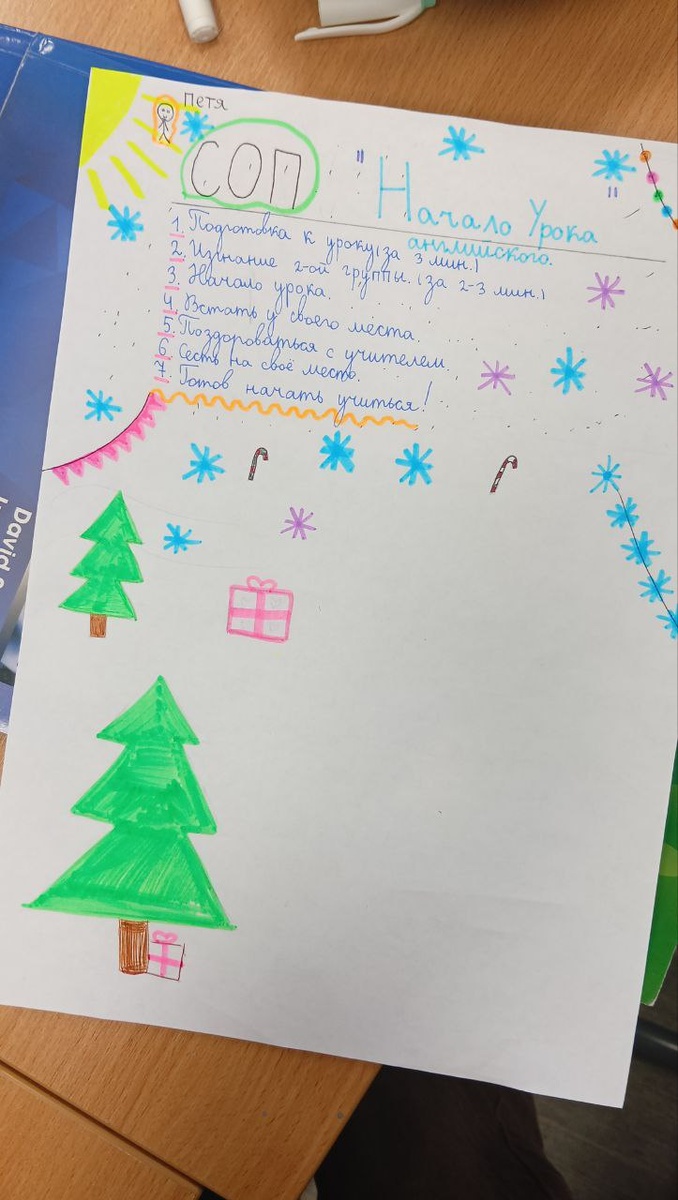 Петя
СОП
"Начало Урока
английского."
1. Подготовка к уроку (за 3 мин.)
2. Изгнание 2-ой группы. (за 2-3 мин.)
3. Начало урока.
4. Встать у своего места.
5. Поздороваться с учителем.
6. Сесть на своё место.
7. Готов начать учиться!
David